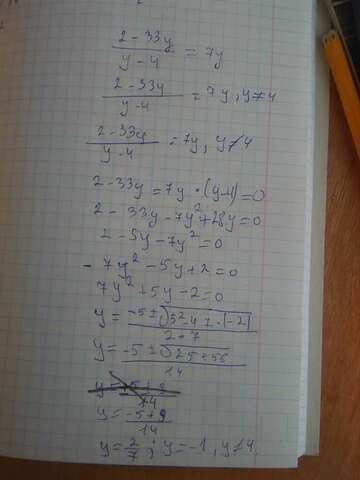 2-33y/y-4 = 7y
2-33y/y-4 = 7y, y≠4
2-33y/y-4 = 7y, y≠4
2-33y=7y·(y-4)=0
2-33y-7y²+28y=0
2-5y-7y²=0
-7y²-5y+2=0
7y²+5y-2=0
y=-5±√5²-4·7·(-2)/2·7
y=-5±√25+56/14
y=-5±9/14
y=2/7; y=-1, y≠4